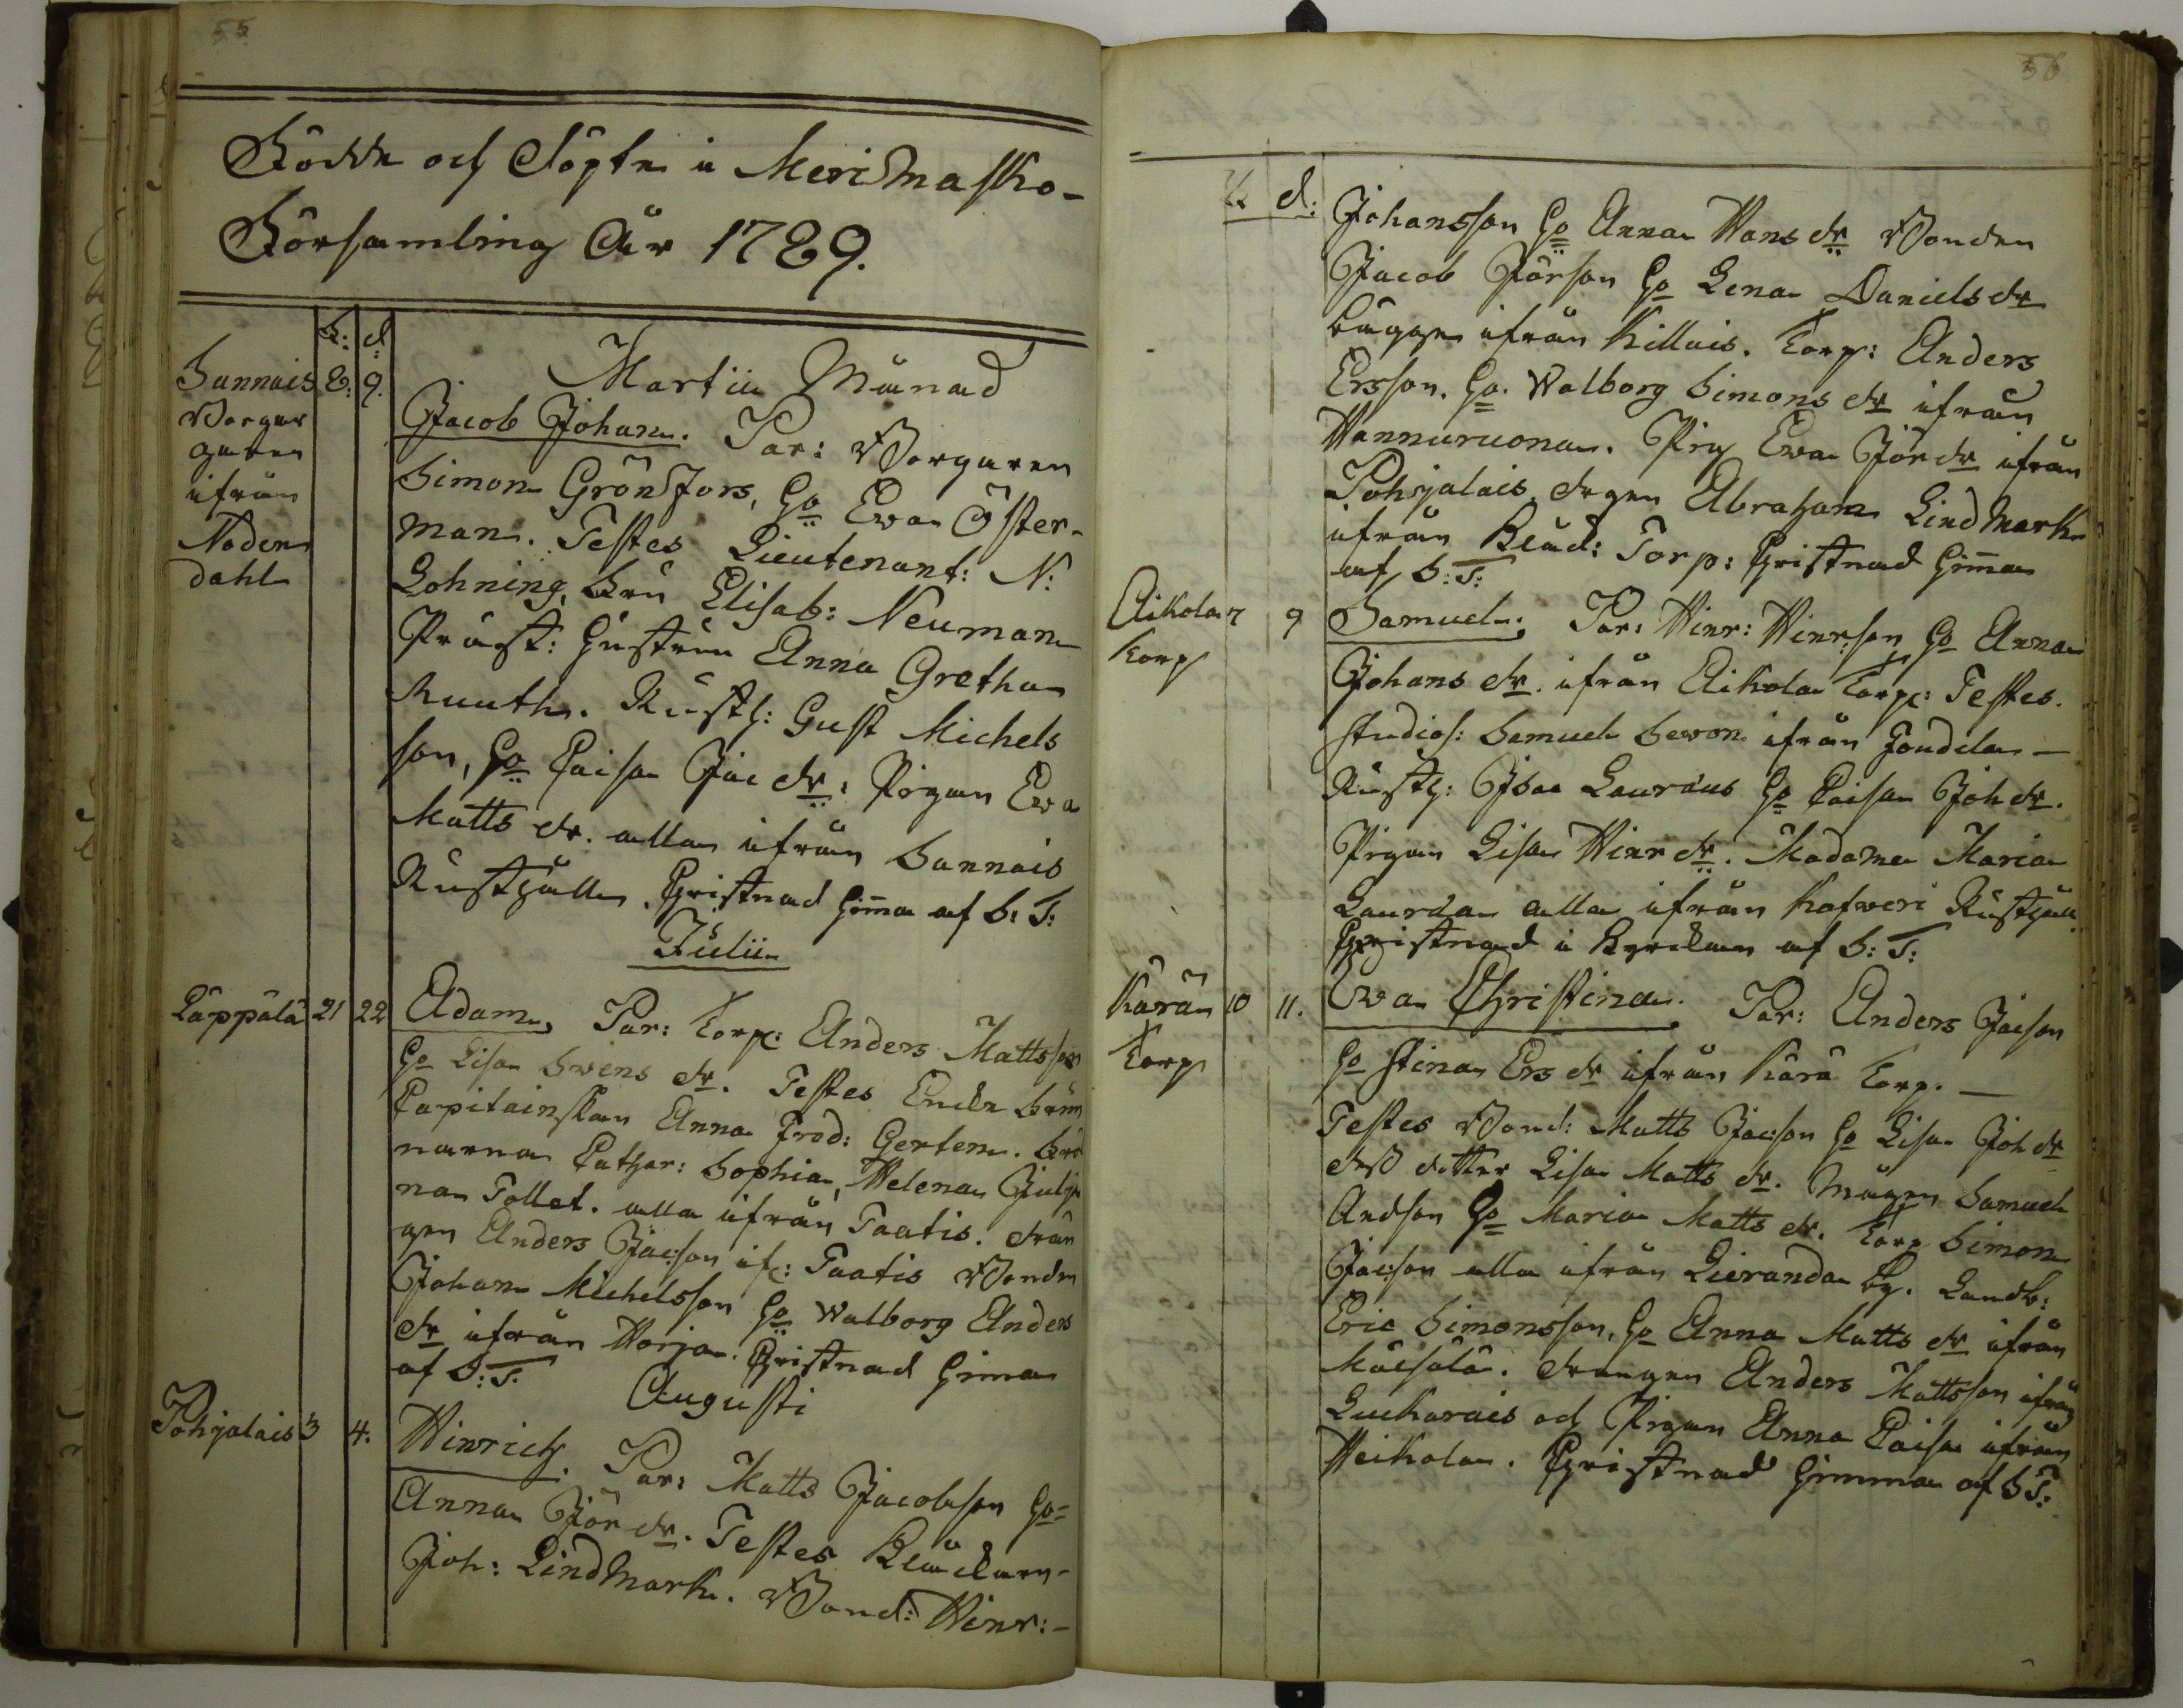 55
Födde och Döpte i Merimasko-
Församling År 1789.
F: d:
Martii Månad
Sannais 8. 9. Jacob Johan. Par: Borgaren
Borgar
garen
ifrån
Noden
dahl
Simon Grönfors, Ho Eva Öster-
man. Testes Lieutenant: N:
Lohning, Fru Elisab: Neuman
Pråst: Hustrun Anna Gretha
Ruuth. Rusth: Gust Michels
son, Ho Caisa Jac dr: Pigan Eva
Matts dr. alla ifrån Sannais
Rusthåll. Christnad Hema af S: T:
Julii
Läppälä 21 22 Adam, Par: Torp: Anders Mattsson
Ho Lisa Svens dr. Testes Enke Frun
Capitainskan Anna Fred: Gerten. Frök
narna Cathar: Sophia, Helena Julja
na Tollet. alla ifrån Taatis. drän
gen Anders Jacson if: Taatis Bonden
Johan Michelsson Ho Walborg Anders
dr ifrån Worja. Christnad Hema
af S: T.
Augusti
Pohjalais 3 4. Hinrich. Par: Matts Jacobson Ho=
Anna Jör dr. Testes Klåckarn-
Joh: Lindmark. Bond: Hinr:-
56
F. d.
Johansson Ho Anna Hans dr Bonden
Jacob Jörson Ho Lena Daniels dr
bägge ifrån Killais. Torp: Anders
Ersson. Ho. Walborg Simons dr ifrån
Hannuruona. Pig Eva Jör dr ifrån
Pohjalais. drgen Abraham Lindmark
ifrån Klåck: Torp: Christnad Hema
af S: T:
Aikola 7 9 Samuel. Par: Hinr: Hinrson Ho Anna
Torp
Johans dr. ifrån Aikola Torp: Testes.
Studios: Samuel Sevon ifrån Jondila —
Rusth: Isac Lauræus Ho Caisa Joh dr.
Pigan Lisa Hinr dr. Madame Maria
Lauræa alla ifrån Kofveri Rusthåll
Christnad i Kyrckan af S: T:
Kärä 10 11. Eva Christina. Par: Anders Jacson
Torp
Ho Stina Ers dr ifrån Kärä Torp. —
Testes Bond: Matts Jacson Ho Lisa Joh dr
des dotter Lisa Matts dr. Mågen Samuel
Andson Ho Maria Matts dr. Torp Simon
Jacson alla ifrån Lieranda by. Landb:
Eric Simonsson, Ho Anna Matts dr ifrån
Mäesälä. drängen Anders Mattsson ifrån
Luckarais och Pigan Anna Caisa ifrån
Heikola. Christnad Hemma af S T: